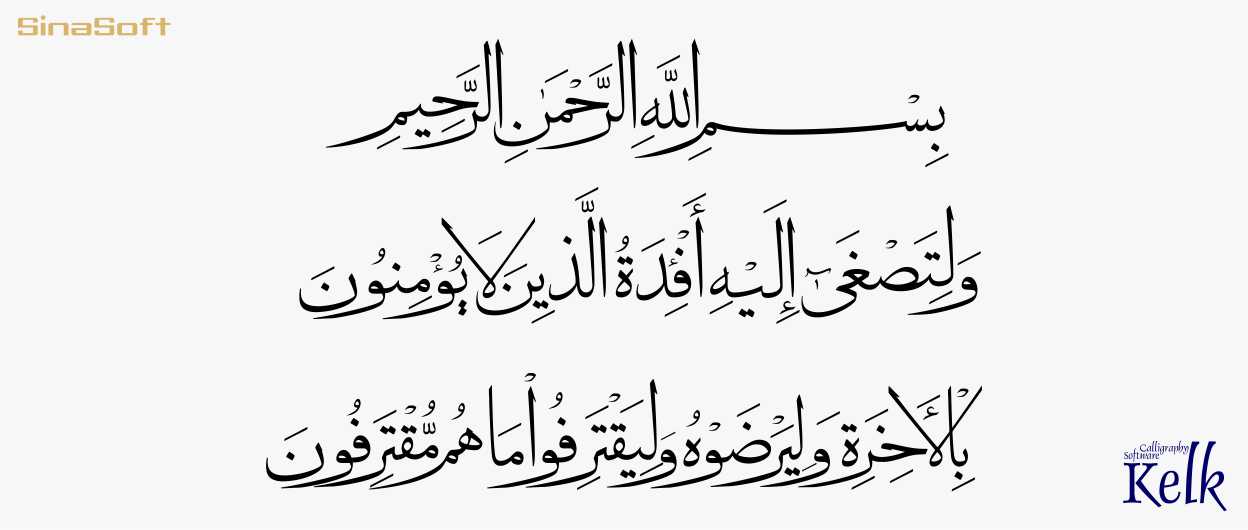 SinaSoft
بِسْمِ اللَّهِ الرَّحْمَٰنِ الرَّحِيمِ
وَلِتَصْغَىٰٓ إِلَيْهِ أَفْـِٔدَةُ الَّذِينَ لَا يُؤْمِنُونَ
بِالْأَخِرَةِ وَلِيَرْضَوْهُ وَلِيَقْتَرِفُوا۟ مَا هُم مُّقْتَرِفُونَ
Calligraphy
Software
Kelk